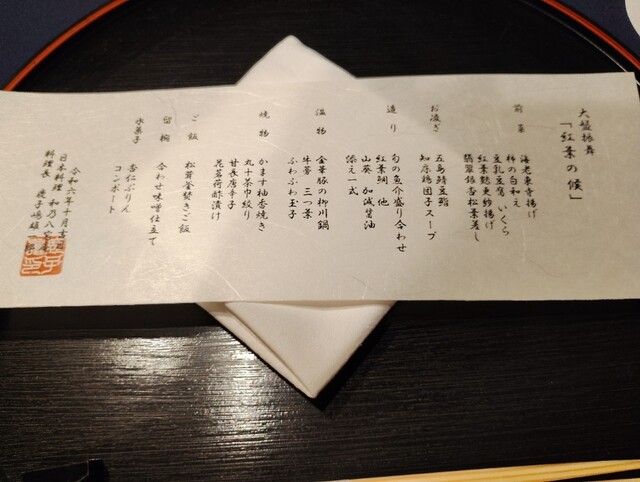 大盤振舞
「紅葉の候」
前菜
海老東寺揚げ
柿の白和え
豆乳豆腐 いくら
紅葉麩東妙揚げ
翡翠銀杏松葉差し
お凌ぎ
五島鯖豆鮨
知床鶏団子スープ
造り
旬の魚介盛り合わせ
紅葉鯛 他
山葵 加減醤油
添え一式
温物
金華豚の柳川鍋
牛蒡 三つ葉
ふわふわ玉子
焼物
かます柚香焼き
丸十茶巾絞り
甘長唐辛子
茗荷酢漬け
ご飯
松茸釜焚きご飯
留椀
合わせ味噌仕立て
水菓子
杏仁ぷりん
コンポート
令和六年十月吉日
日本料理 和乃八
料理長